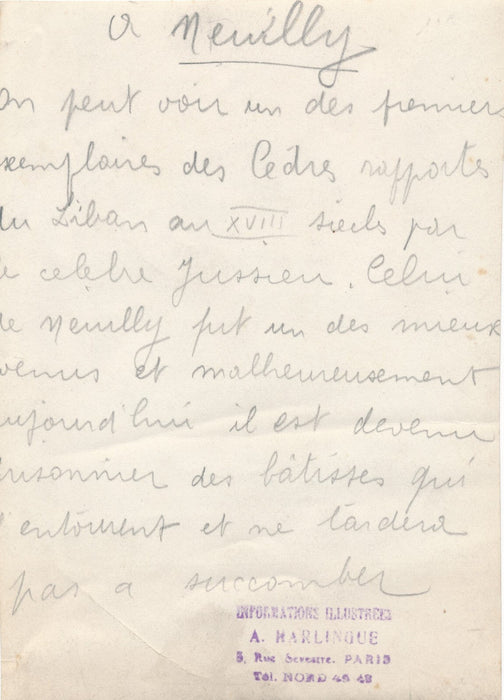 A Neuilly
On peut voir un des premiers
exemplaires des Cèdres rapportes
du Liban au XVIII siècle par
le celèbre Jussieu. Celui
de Neuilly fut un des mieux
venus et malheureusement
aujourd'hui il est devenu
prisonnier des bâtisses qui
l'entourent et ne tardera
pas a succomber
INFORMATIONS ILLUSTRÉES
A. HARLINGUE
5, Rue Seveste. PARIS
Tél. NORD 46 48